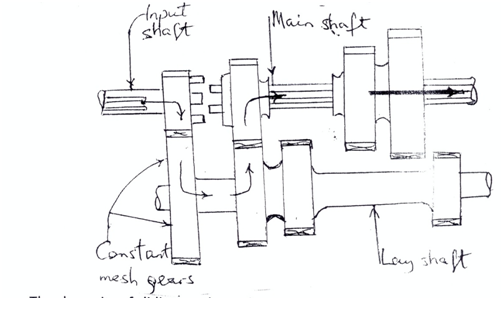 Input
shaft
Main shaft
Constant
mesh gears
Lay shaft